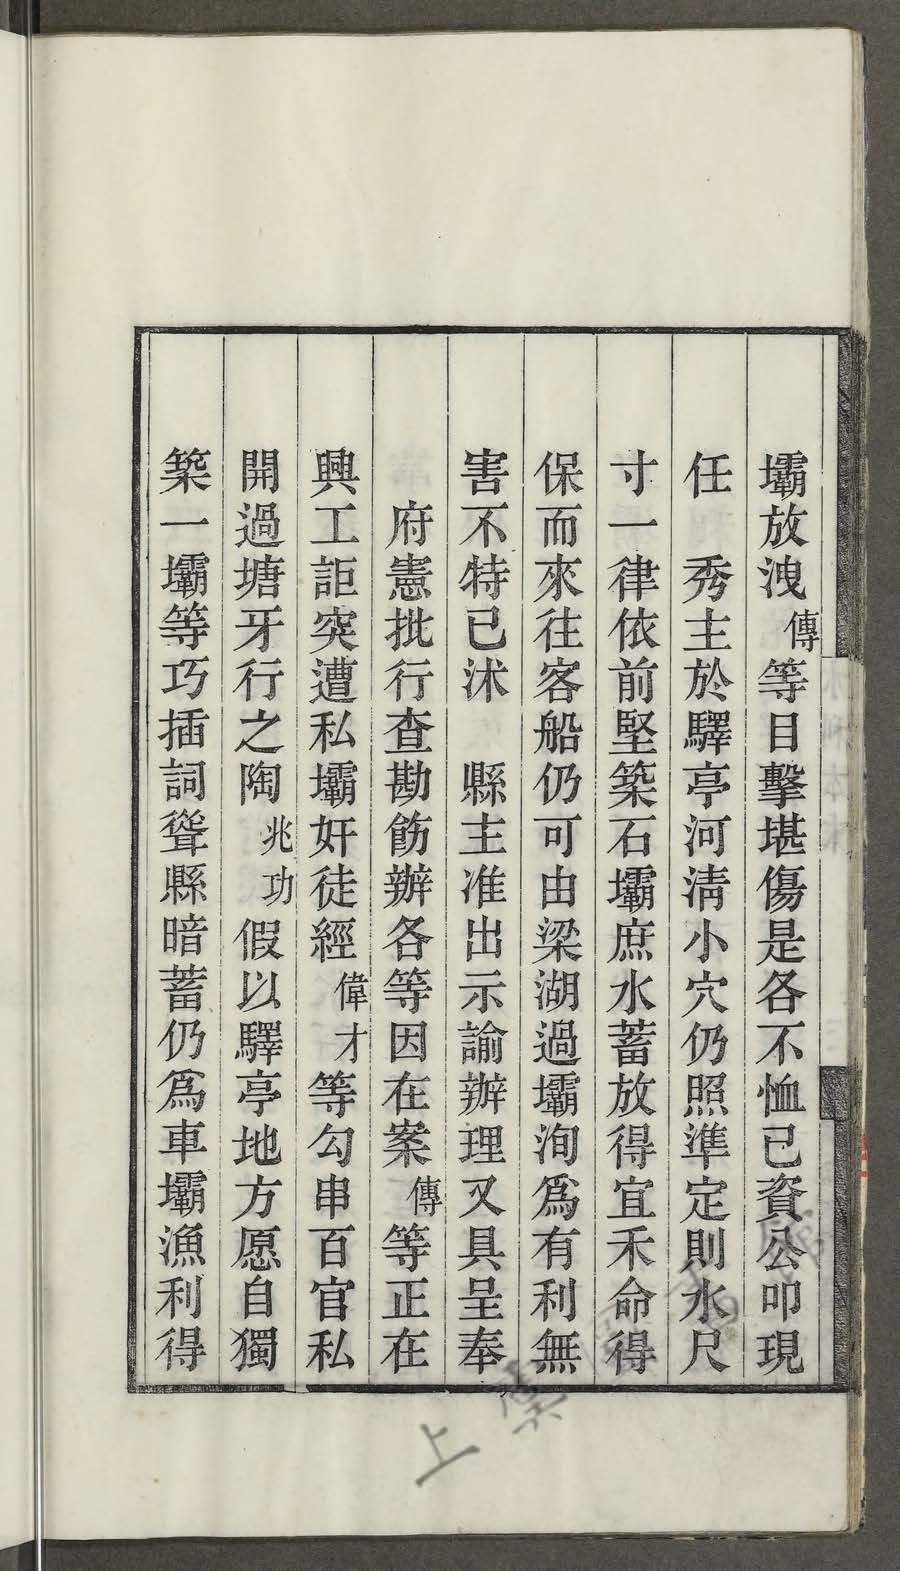 壩放洩傳等目擊堪傷是各不恤已資公叩現
任　秀主於驛亭河淸小穴仍照準定則水尺
寸一律依前堅築石壩庶水蓄放得宜禾命得
保而來往客船仍可由梁湖過壩洵爲有利無
害不特已沐　縣主准出示諭辦理又具呈奉
府憲批行查勘飭辦各等因在案傳等正在
興工詎突遭私壩奸徒經偉才等勾串百官私
開過塘牙行之陶兆功假以驛亭地方愿自獨
築一壩等巧插詞聳縣暗蓄仍爲車壩漁利得
上虞